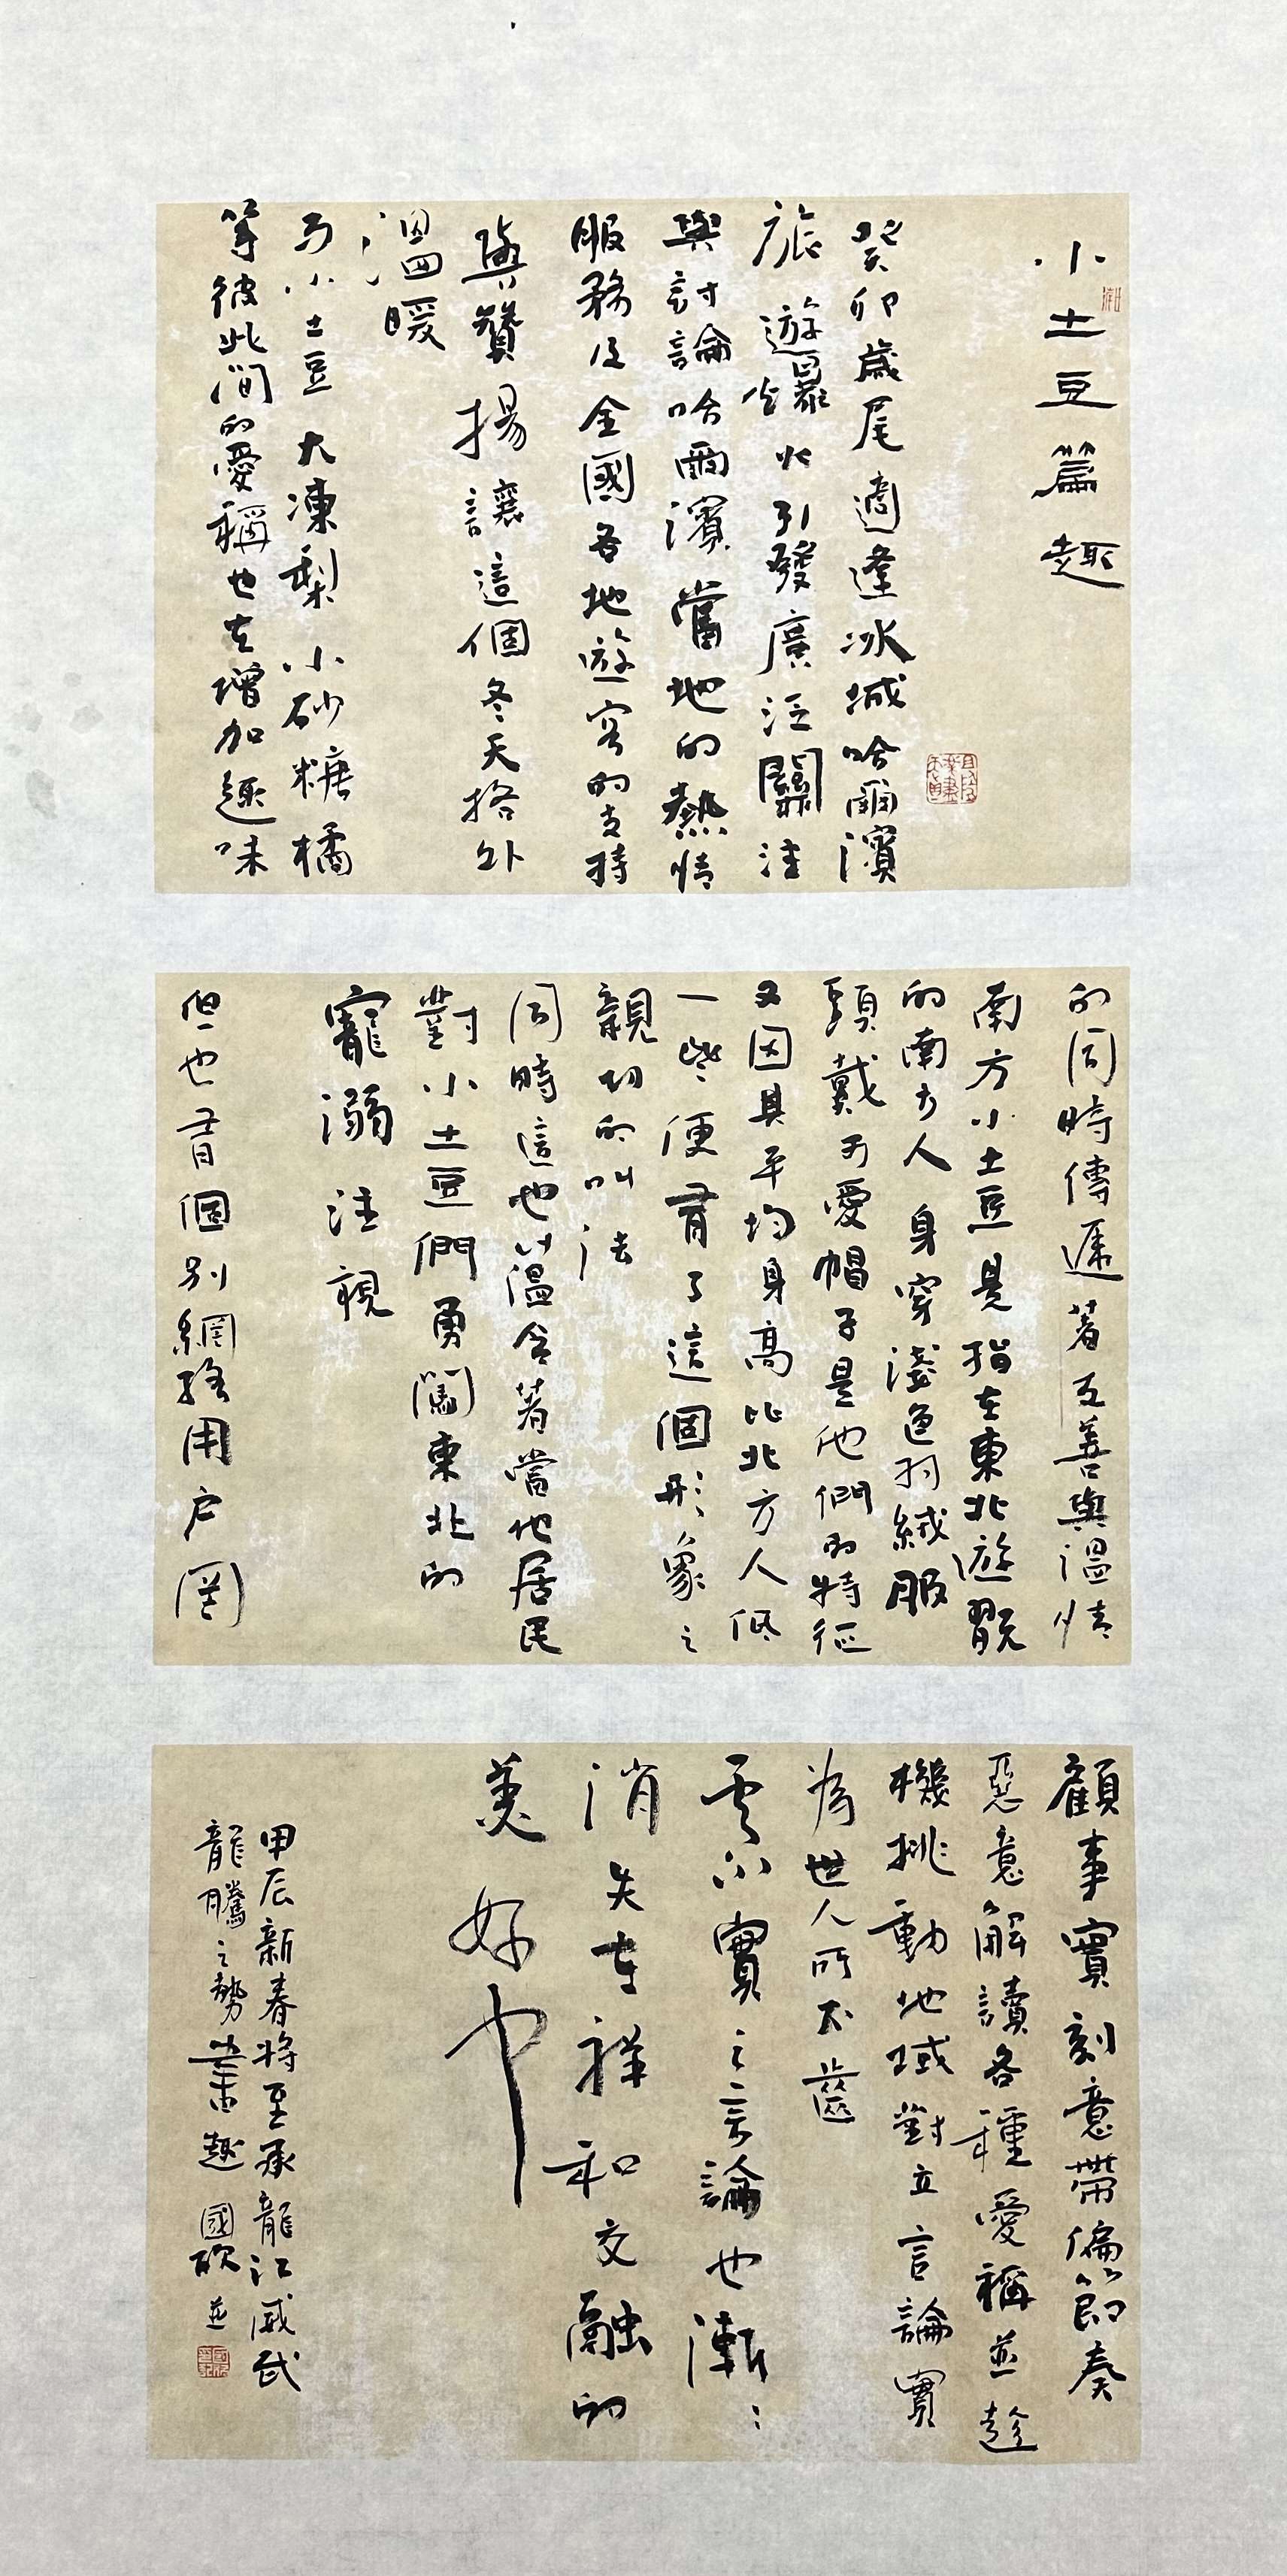 小土豆篇趣
癸卯歲尾適逢冰城哈爾濱
旅遊爆火引發廣泛關注
與討論哈爾濱當地的熱情
服務及全國各地遊客的支持
與贊揚讓這個冬天格外
溫暖
而小土豆大凍梨小砂糖橘
等彼此間的愛稱也在增加趣味
的同時傳遞著友善與溫情
南方小土豆是指在東北遊翫
的南方人身穿淺色羽絨服
頭戴可愛帽子是他們的特征
又因其平均身高比北方人低
一些便有了這個形象之
親切的叫法
同時這也蘊含著當地居民
對小土豆們勇闖東北的
寵溺注視
但也有個別網絡用户罔
顧事實刻意帶偏節奏
惡意解讀各種愛稱並趁
機挑動地域對立言論實
為世人所不齒
云不實之言論也漸〻
消失在祥和交融的
美好中
甲辰新春將至承龍江威武
龍騰之勢書趣國欣並